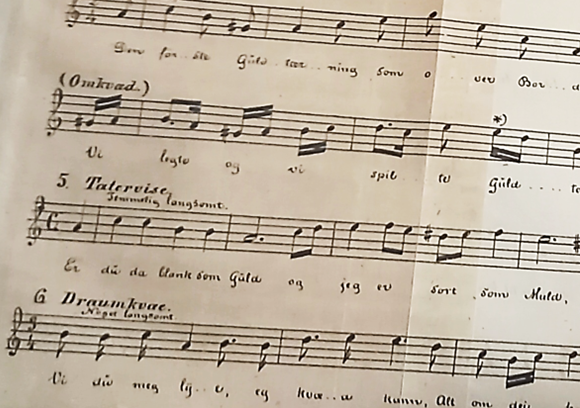 Denför ste Güld tær.. ning som o .. ver Bor . d
(Omkvad.)
*)
Vi legte og vi spil . te Güld ... te
5. Tatervise.
Temmelig langsomt.
C
Er dü da blank som Güld og jeg er sort som Muld,
6 Draumkvæ.
Noget langsomt
3 4
Vi dü meg ly .. e, eg kvæ .. a kann, Alt om dei